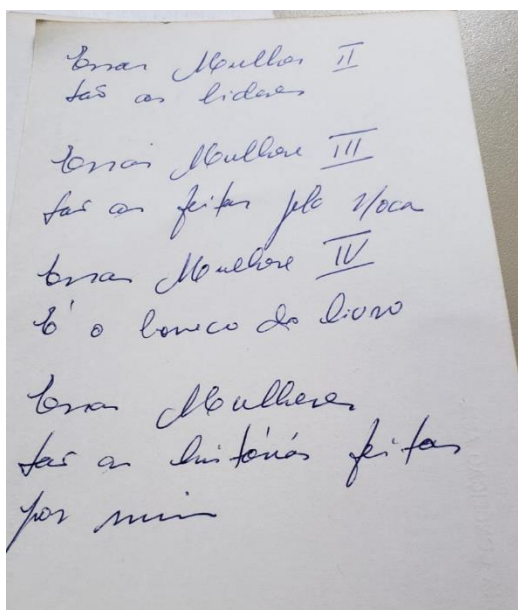 Essas Mulher II
São as lideres
Essas Mulhere III
São as feitas pela Noca
Essas Mulhere IV
É o boneco do livro
Essas Mulheres
São as histórias feitas
por mim